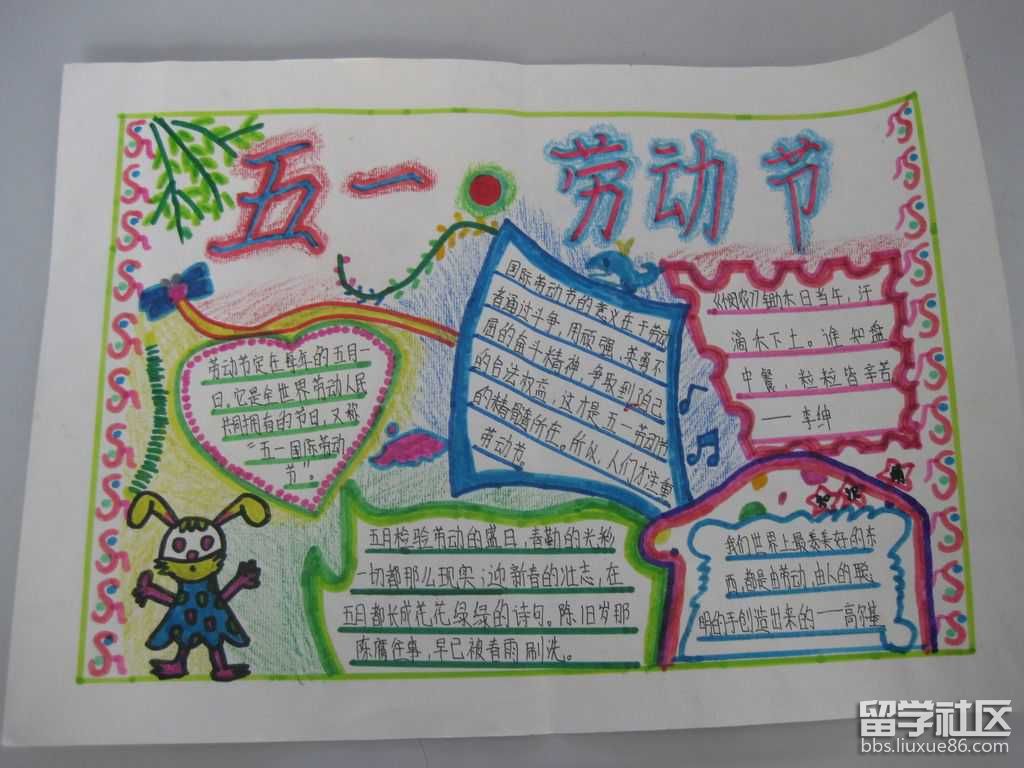 五一 劳动节
劳动节定在每年的五月一
日，它是全世界劳动人民
共同拥有的节日，又被
“五一国际劳动
节”。
国际劳动节的意义在于劳动
者通过斗争，用顽强、英勇不
屈的奋斗精神，争取到了自己
的合法权益，这才是五一劳动节
的精髓所在。所以，人们才注重
劳动节。
《悯农》锄禾日当午，汗
滴禾下土。谁知盘
中餐，粒粒皆辛苦
——李绅
五月检验劳动的盛日，春勤的光彩
一切都那么现实；迎新春的壮志，在
五月都长成花花绿绿的诗句。陈旧岁那
陈腐往事，早已被春雨刷洗。
知识角
我们世界上最美好的东
西，都是由劳动，由人的聪
明的手创造出来的——高尔基
留学社区
bbs.liuxue86.com